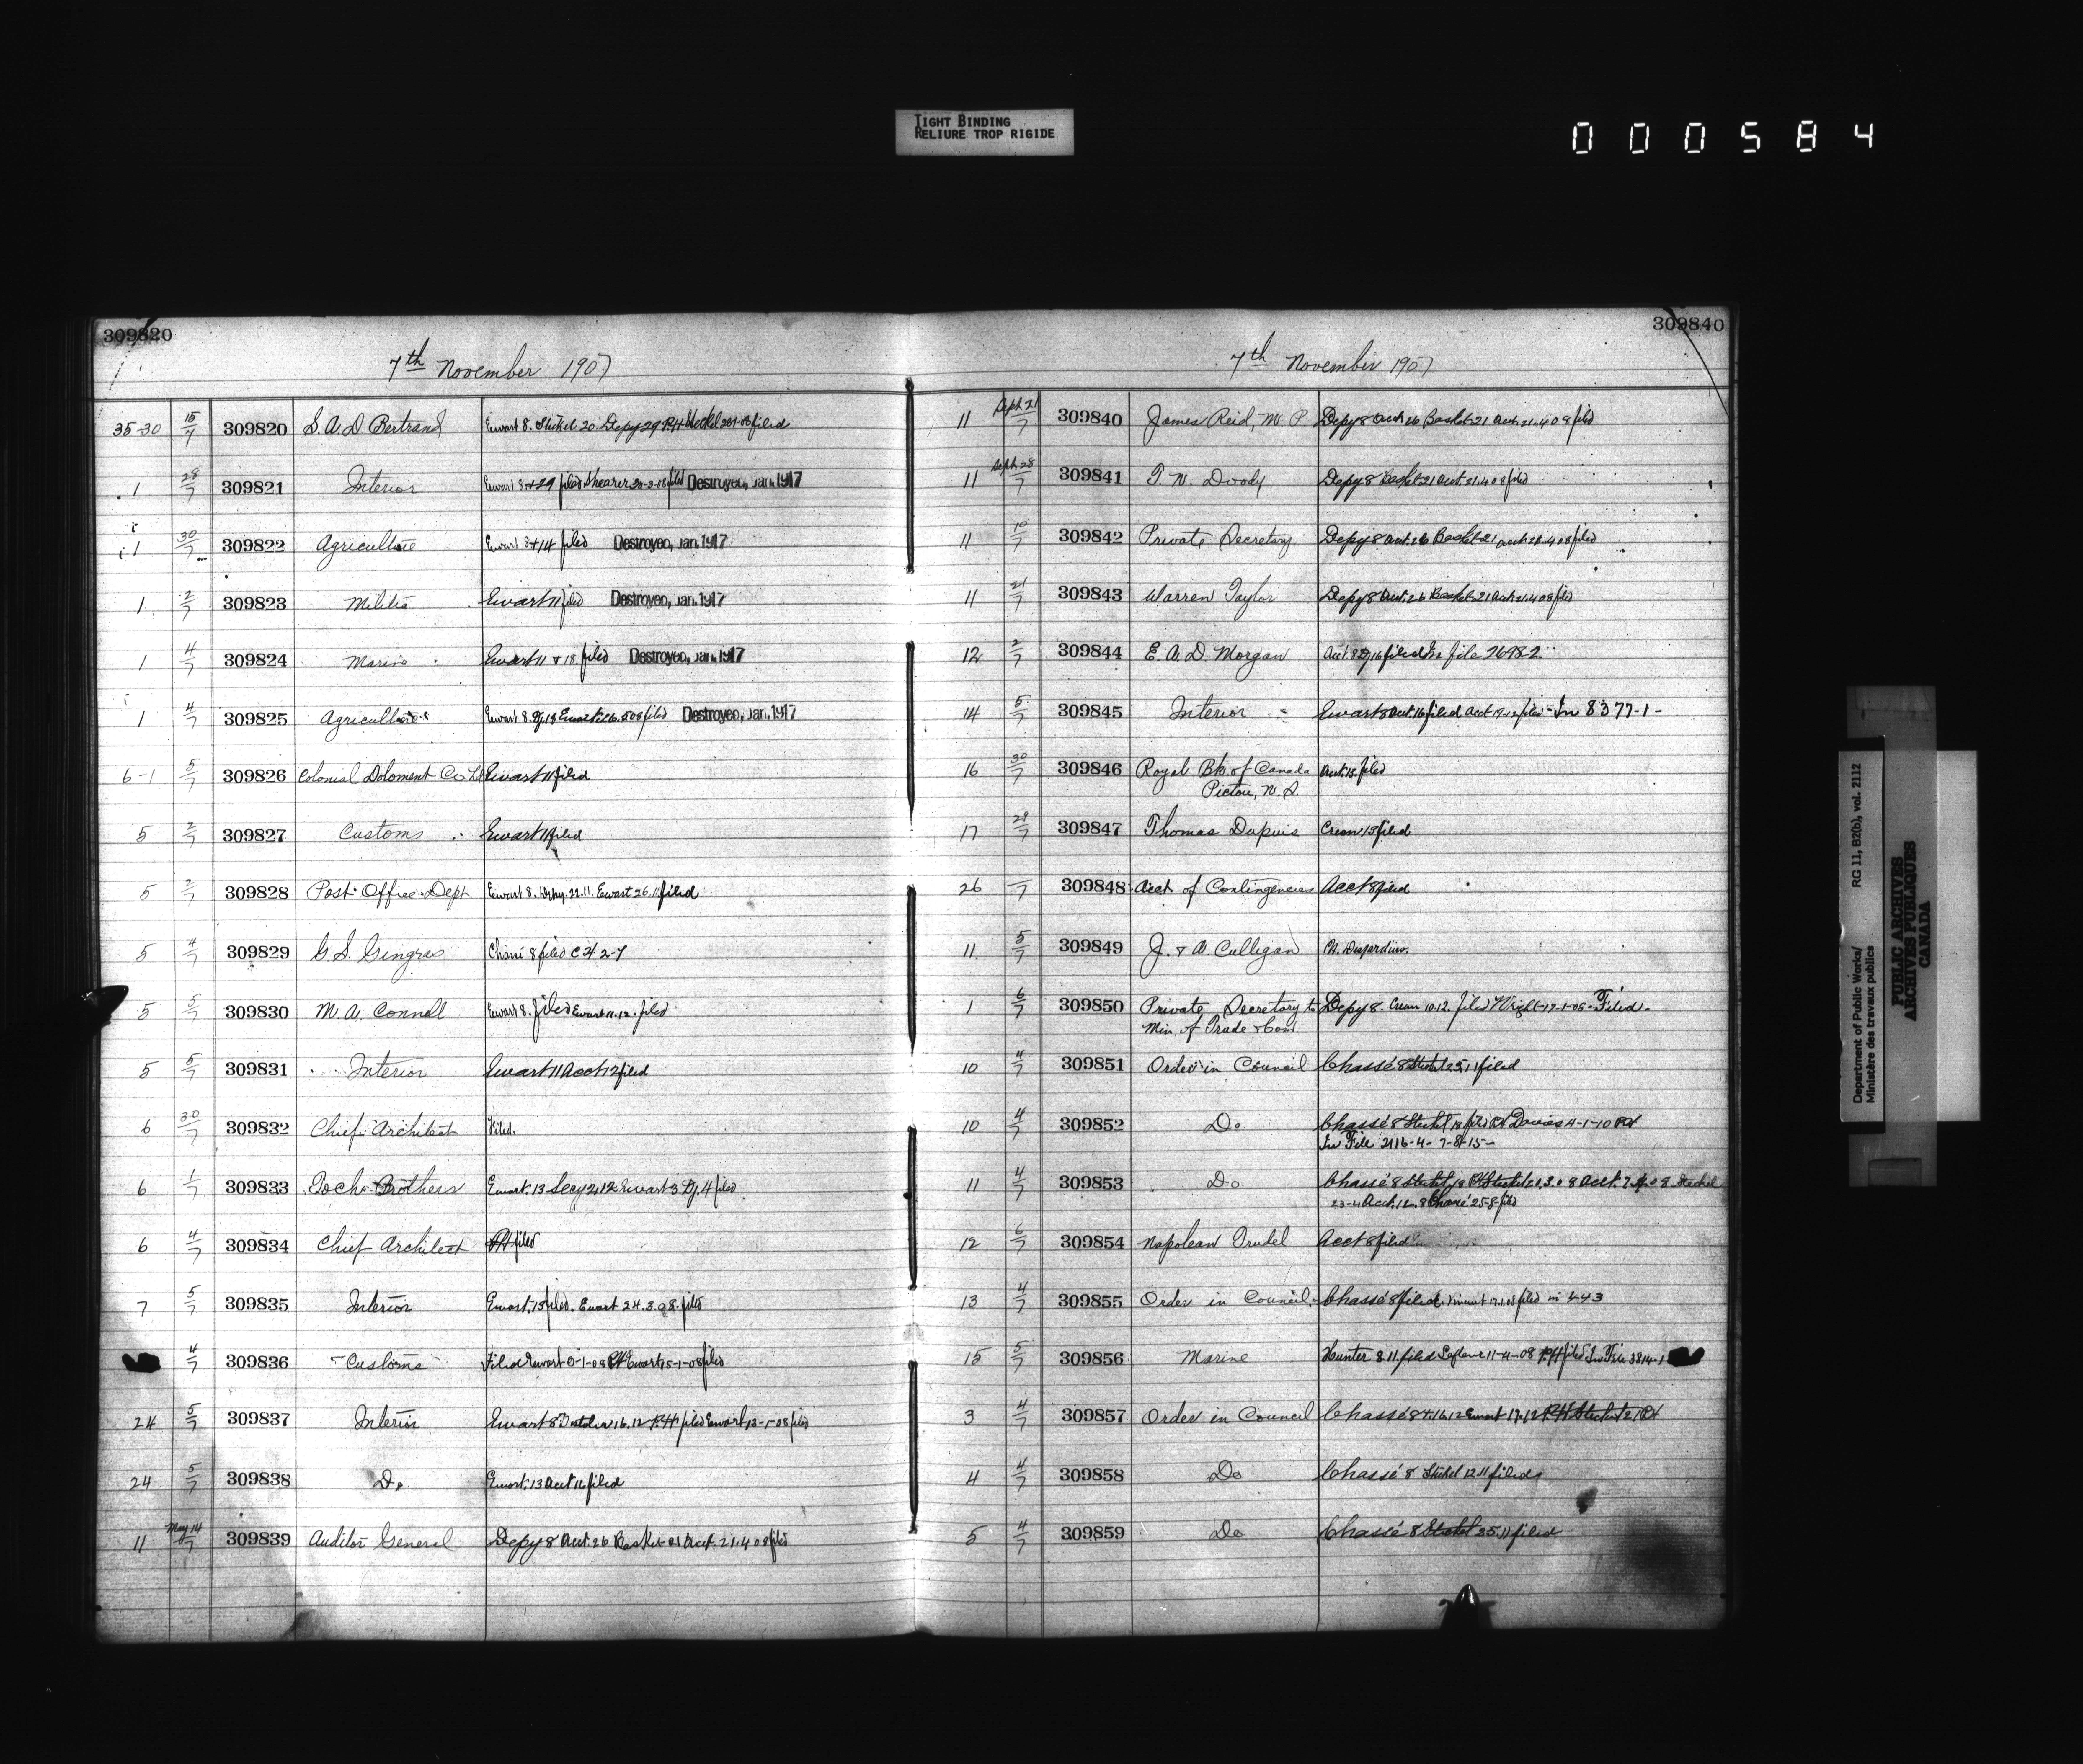 TIGHT BINDING
RELIURE TROP RIGIDE
000584
309820
7th November 1907
35-30 15/7 309820 S. A. D. Bertrand Ewart 8. Stekel 20 Depy 29 filed
1 28/7 309821 Interior Ewart 8 + 29 filed Shearer filed Destroyed, Jan. 1917
1 30/7 309822 Agriculture Ewart 8 + 14 filed Destroyed, Jan. 1917
1 2/7 309823 Militia Ewart 11 filed Destroyed, Jan. 1917
1 4/7 309824 Marine Ewart 11 + 18. filed Destroyed, Jan. 1917
1 4/7 309825 Agriculture Ewart 8. filed Destroyed, Jan. 1917
6-1 5/7 309826 Colonial Co Ewart 11 filed
5 2/7 309827 Customs Ewart 11 filed
5 2/7 309828 Post Office Dept Ewart 8. 22.11. Ewart 26.11 filed
5 4/7 309829 G. S. Gingras Chassé 8 filed
5 5/7 309830 M. A. Connell Ewart 8. filed Ewart 11.12. filed
5 5/7 309831 Interior Ewart 11 Acct 12 filed
6 30/7 309832 Chief Architect Filed.
6 1/7 309833 Brothers Ewart. 13 Secy Ewart 3 Dy. 4 filed
6 4/7 309834 Chief Architect PH filed
7 5/7 309835 Interior Ewart. 13 filed. Ewart 24.3.08. filed
4/7 309836 Customs Filed Ewart filed
24 5/7 309837 Interior Ewart 8 16.12 PH filed Ewart 13-1-08 filed
24 5/7 309838 Do Ewart. 13 Acct 16 filed
11 May 14/7 309839 Auditor General Depy 8 Acct. 26 Basket 21 Acct. 21.4 08 filed
309840
7th November 1907
11 Sept 21/7 309840 James Reid, M. P. Depy 8 Acct 26 Basket 21 Acct. 21.4 08 filed
11 Sept 28/7 309841 T. W. Doody Depy 8 Basket 21 Acct. 21.4 08 filed
11 19/7 309842 Private Secretary Depy 8 Acct. 26 Basket 21 Acct filed
11 21/7 309843 Warren Taylor Depy 8 Acct. 26 Basket 21 Acct 21.4 08 filed
12 2/7 309844 E. A. D. Morgan Acct. 8 Dy 16 filed In file 2698-2.
14 5/7 309845 Interior Ewart 8 Acct. 16 filed, Acct filed - In 8377-1-
16 30/7 309846 Royal Bk. of Canada Acct. 13. filed
Pictou, N. S.
17 28/7 309847 Thomas Dupuis Crean 13 filed
26 —/7 309848 Acct of Contingencies Acct 8 filed
11. 5/7 309849 J. & A. Culligan Desjardins.
1 6/7 309850 Private Secretary to Depy 8. Crean 10.12. filed Wright-17-1-08 - Filed.
Min. of Trade & Com
10 4/7 309851 Order in Council Chassé 8 Stekel 25.11 filed
10 4/7 309852 Do Chassé 8 Stekel 18 filed Davies 4-1-10
In File 2116-4-7-8-15-
11 4/7 309853 Do Chassé 8 Stekel 18 PH Stekel Acct. Steckel
23-4 Acct. 12. 8 Chassé 25-8 filed
12 6/7 309854 Napolean Trudel Acct 8 filed
13 4/7 309855 Order in Council. Chassé 8 filed. Vincent 17.1.08 filed in 443
15 5/7 309856 Marine Hunter 8 11. filed 11-4-08 PH filed In File 3814-1
3 4/7 309857 Order in Council Chassé 8 Ewart 17.12 PH Stekel
4 4/7 309858 Do Chassé 8 Stekel 12 11 filed
5 4/7 309859 Do Chassé 8 Stekel 25.11 filed
Department of Public Works/
Ministère des travaux publics
RG 11, B2(b), vol. 2112
PUBLIC ARCHIVES
ARCHIVES PUBLIQUES
CANADA